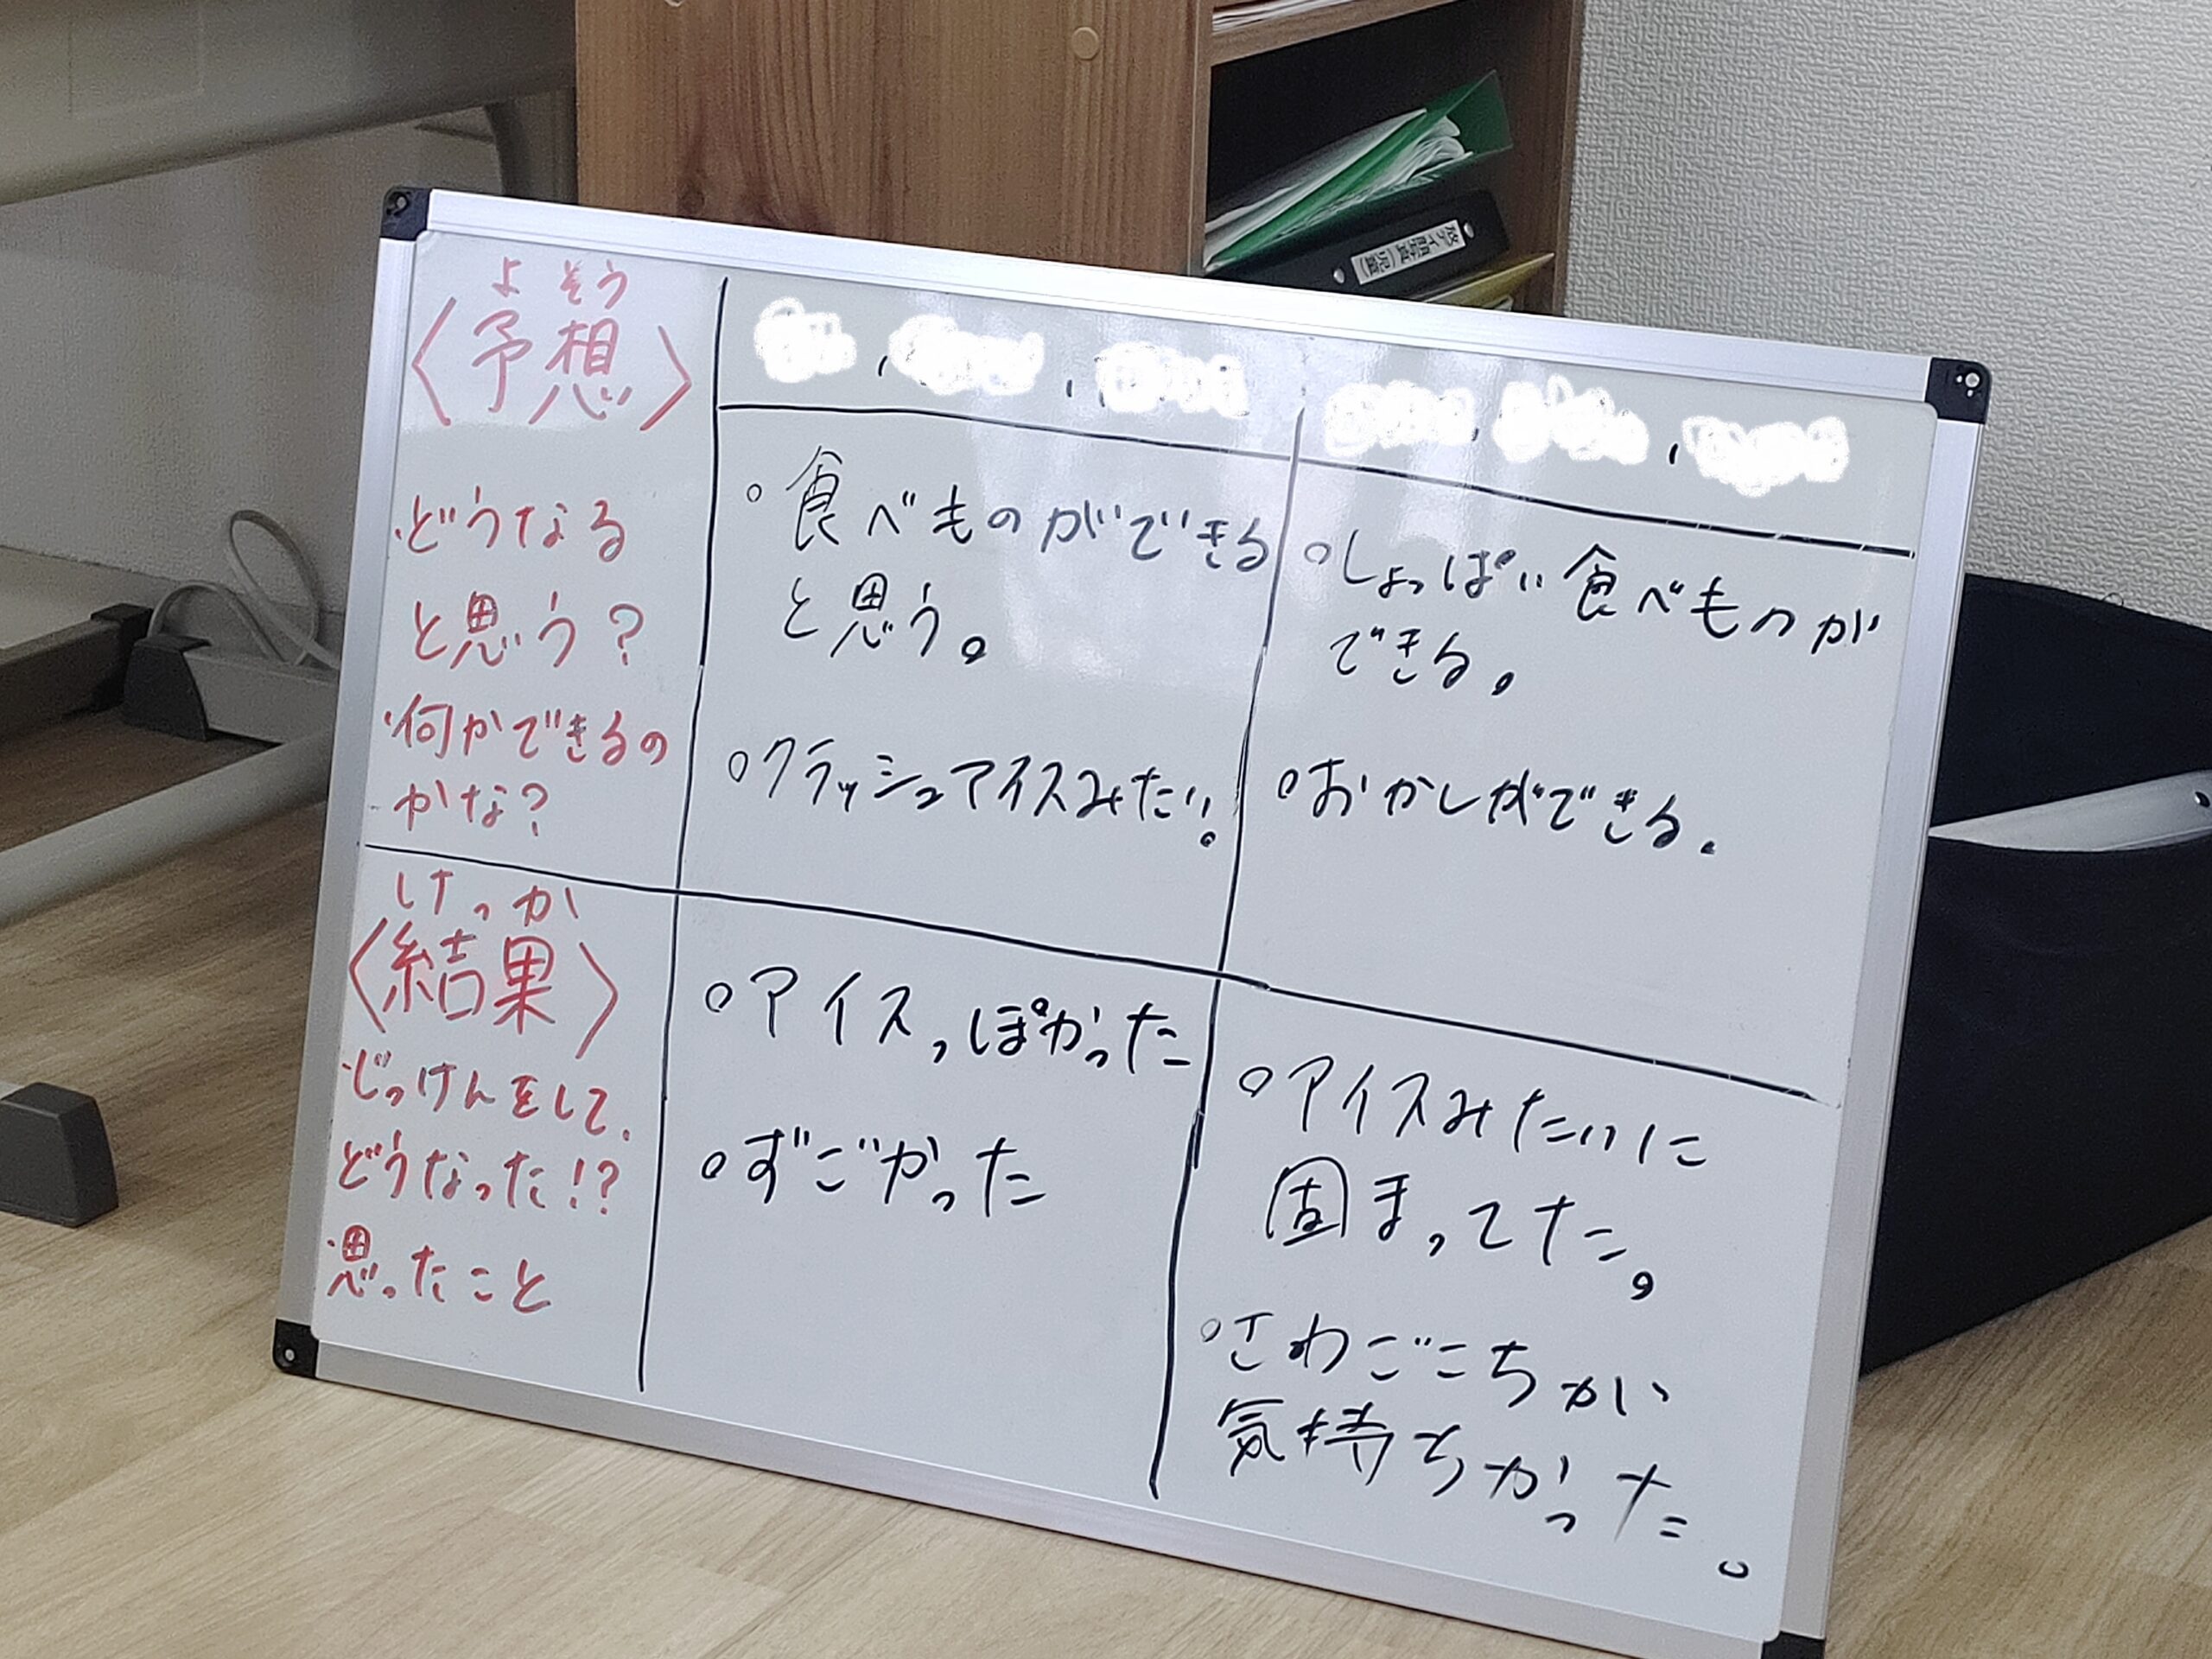 よそう
〈予想〉
・どうなる
と思う?
・何かできるの
かな?
○食べものができる
と思う。
○クラッシュアイスみたい。
○しょっぱい食べものが
できる。
○おかしができる.
けっか
〈結果〉
・じっけんをして、
どうなった!?
・思ったこと
○アイスっぽかった
○ずごかった
○アイスみたいに
固まってた。
○さわごこちがい
気持ちかった。